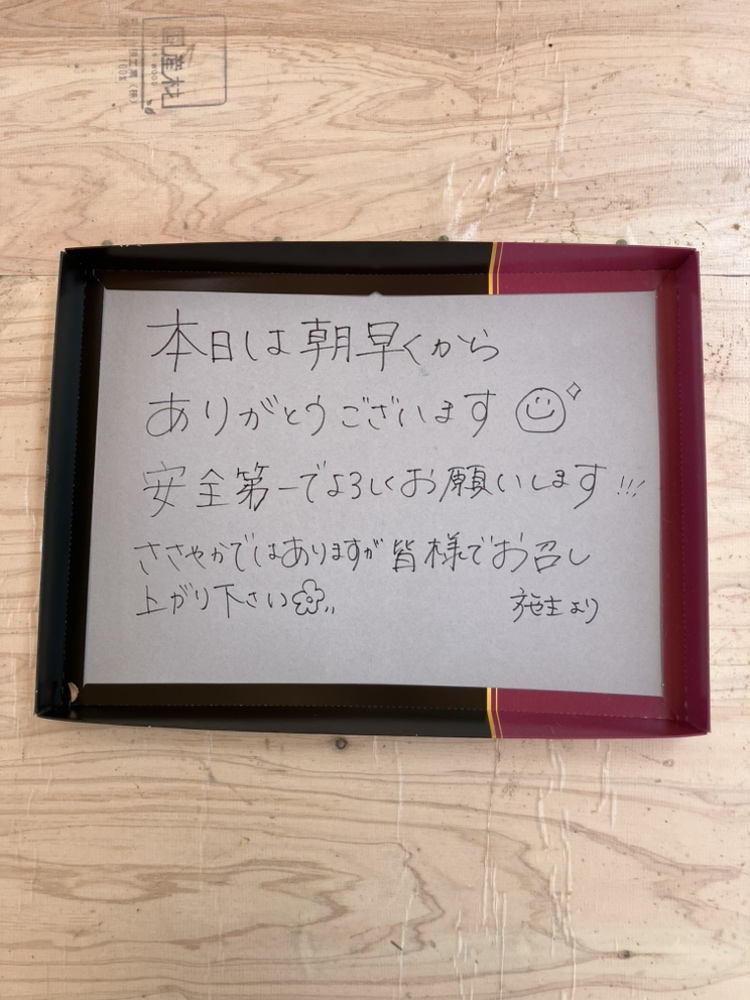 国産材
本日は朝早くから
ありがとうございます
安全第一でよろしくお願いします!!!
ささやかではありますが皆様でお召し
上がり下さい
施主より